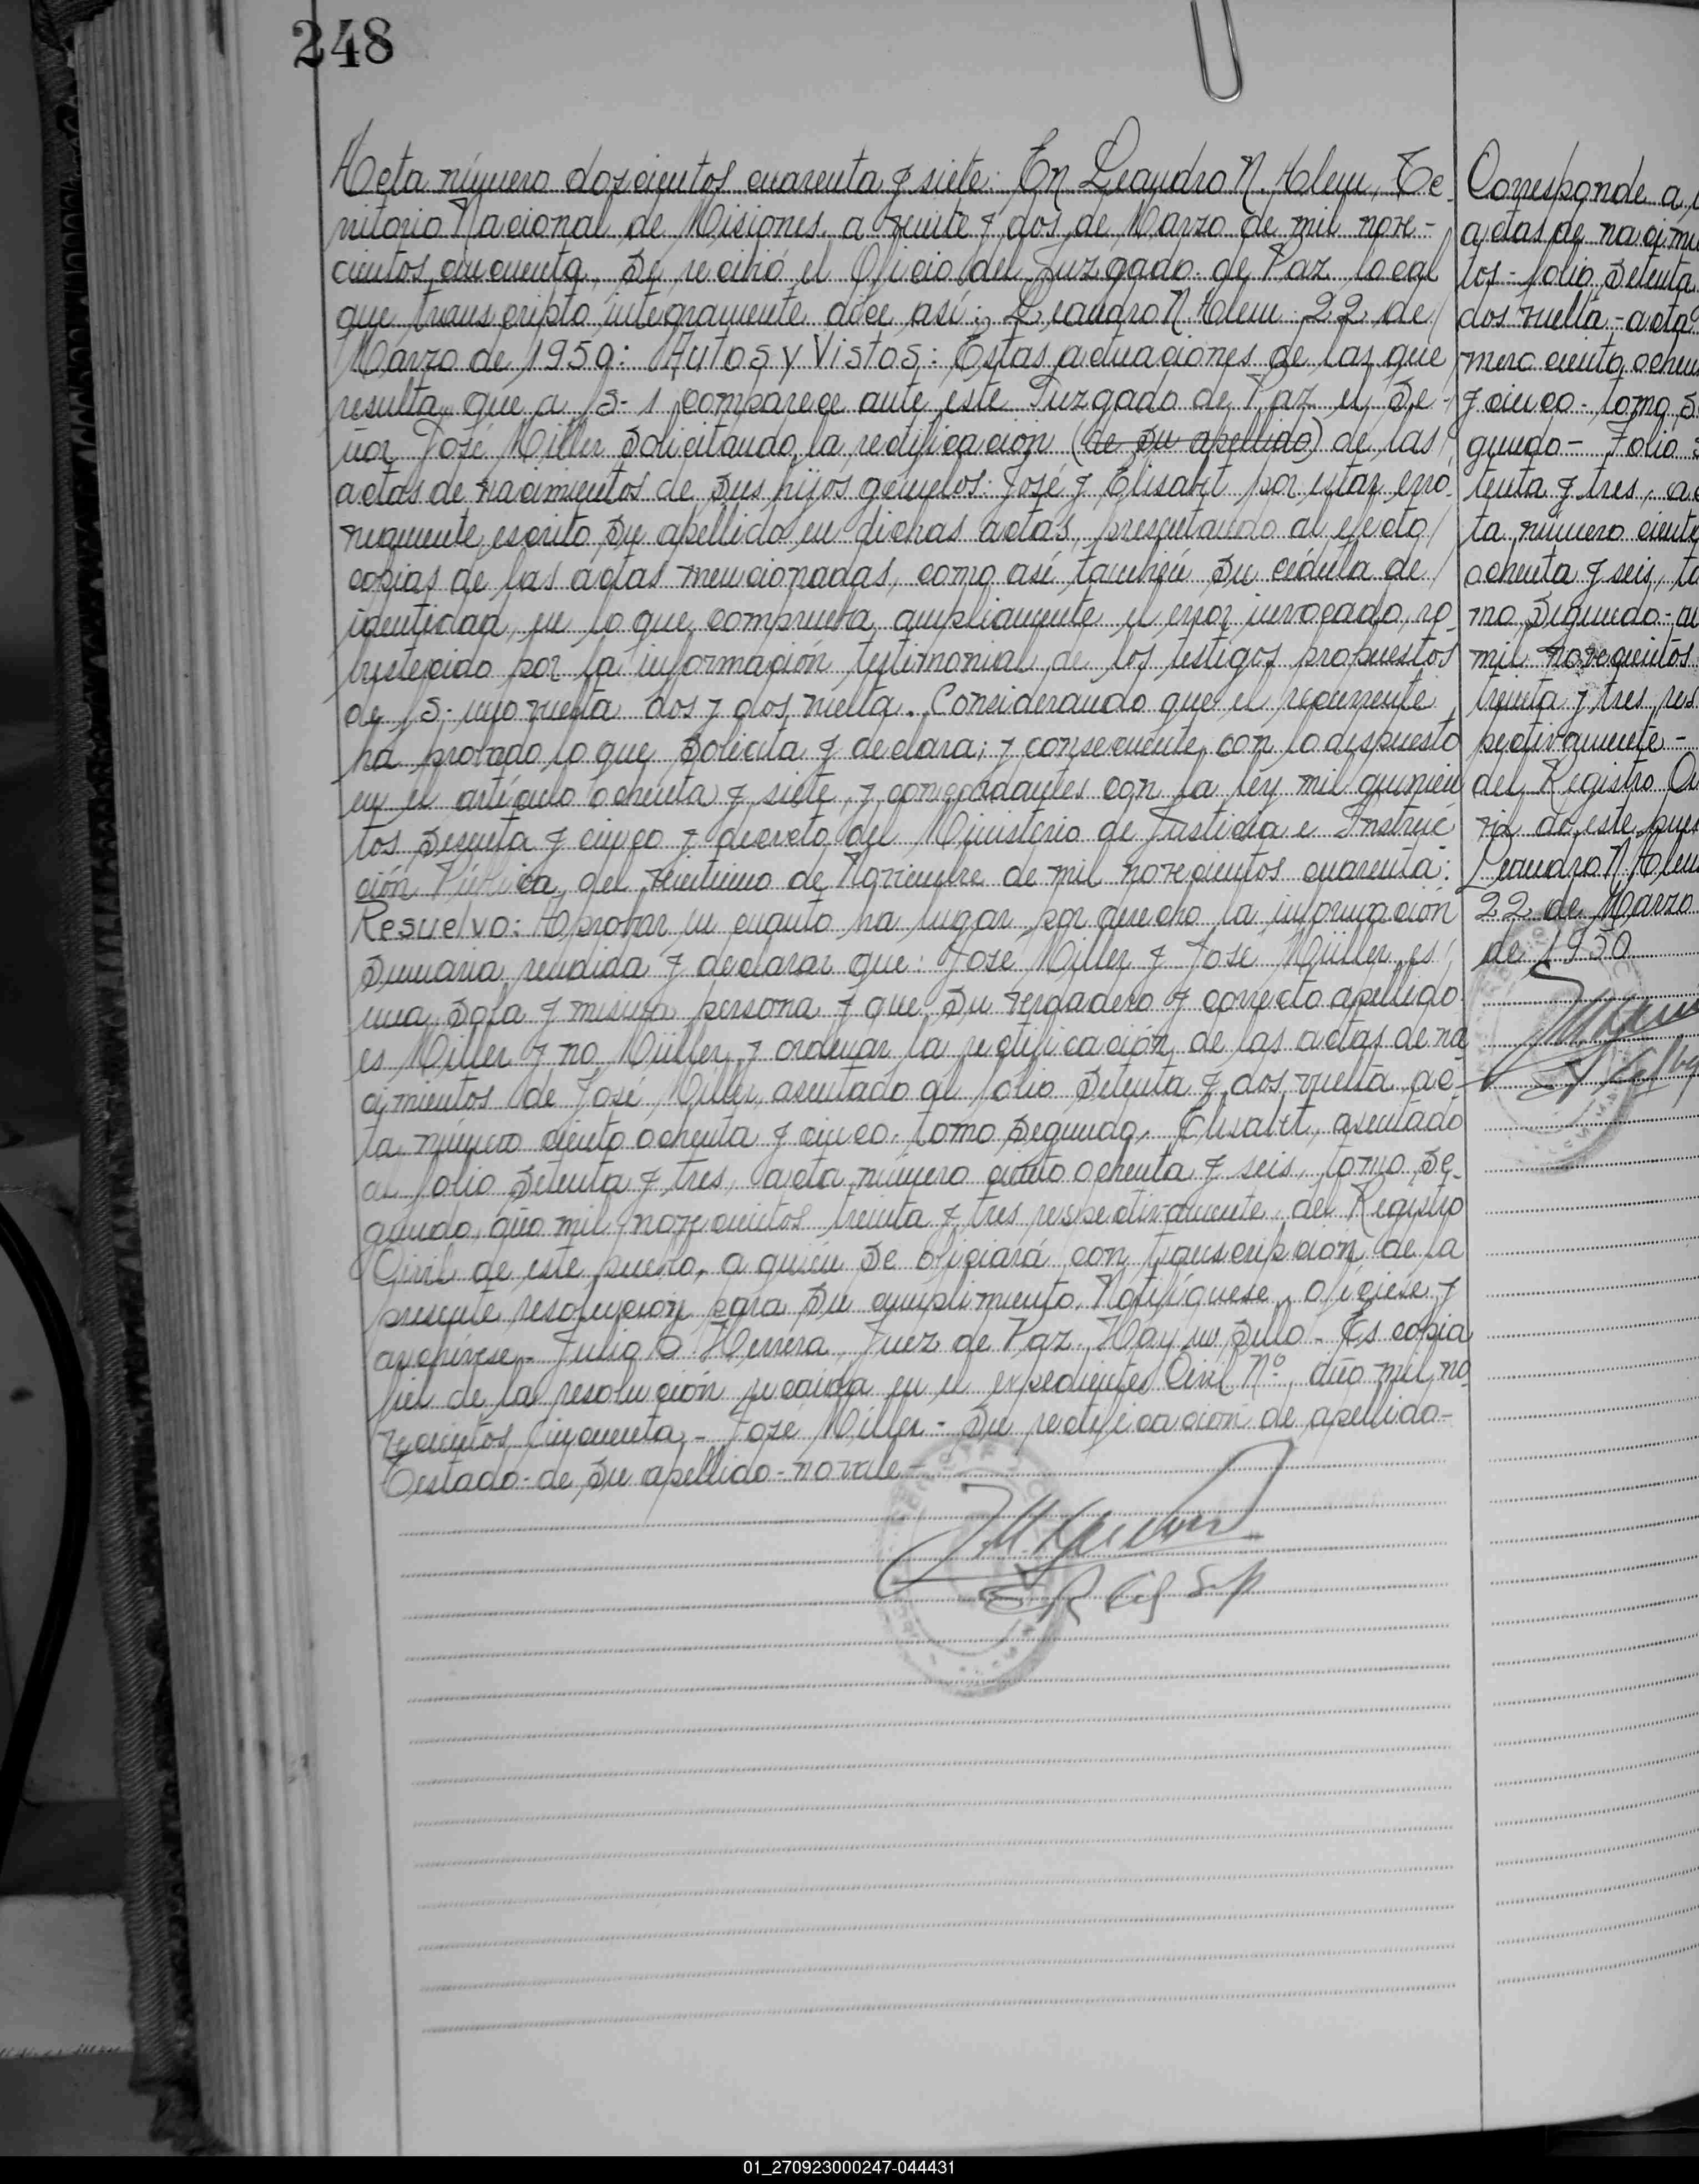 248
Acta número doscientos cuarenta y siete: En Leandro N. Alem, Te-
rritorio Nacional de Misiones, a veinte y dos de Marzo de mil nove-
cientos cincuenta, Se recibó el Oficio del Juzgado de Paz local
que transcripto integramente dice así: Leandro N Alem 22 de
Marzo de 1950: Autos y Vistos: Estas actuaciones de las que
resulta, que a S- 1 comparece ante este Juzgado de Paz el Se-
ñor José Miller Solicitando la rectificación (de Su apellido) de las
actas de nacimientos de Sus hijos gemelos: José y Elisabet por estar erró-
neamente escrito Su apellido en dichas actas, presentando al efecto
copias de las actas mencionadas, como así también Su cédula de
identidad, en lo que comprueba ampliamente el error invocado, ro-
bustecido por la información testimonial de los testigos propuestos
de S- uno vuelta dos y dos vuelta. Considerando que el recurrente
ha probado lo que Solicita y declara; y consecuente con lo dispuesto
en el artículo ochenta y siete, y concordantes con la ley mil quinien
tos Sesenta y cinco y decreto del Ministerio de Justicia e Instruc
ción Pública, del veintiuno de Noviembre de mil novecientos cuarenta:
Resuelvo: Aprobar en cuanto ha lugar por derecho la información
Sumaria rendida y declarar que: José Miller y José Müller es
una Sola y misma persona y que Su verdadero y correcto apellido
es Miller y no Müller, y ordenar la rectificación de las actas de na
cimientos de José Miller, asentado al folio Setenta y dos vuelta ac-
ta número ciento ochenta y cinco. tomo Segundo. Elisabet, asentado
al folio Setenta y tres, acta número ciento ochenta y seis, tomo Se-
gundo, año mil novecientos treinta y tres respectivamente. del Registro
Civil de este pueblo, a quién Se oficiará con transcripción de la
presente resolución para Su cumplimiento. Notifíquese, oficiese y
archívese.- Julio O Herrera. Juez de Paz. Hay un Sello - Es copia
fiel de la resolución recaída en el expedientes Civil Nº, año mil no
vecientos Cincuenta - José Miller - Su rectificación de apellido-
Testado-de Su apellido-no vale-
Corresponde a
actas de nacimi
tos - folio Setenta
dos vuelta - acta
mero ciento ochen
y cinco - tomo S
gundo - Folio
tenta y tres, ac
ta número ciento
ochenta y seis, to
mo Segundo-
mil novecientos
treinta y tres res
pectivamente -
del Registro Ci
vil de este pue
Leandro N Alem
22 de Marzo
de 1950
01_270923000247-044431